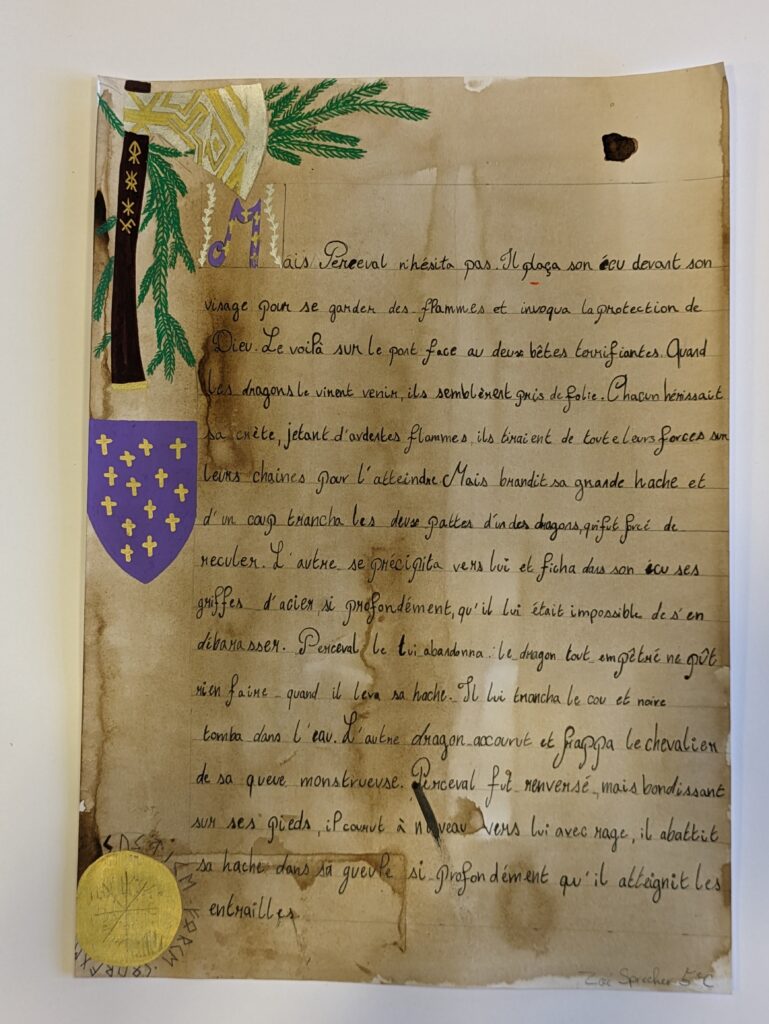 Mais Perceval n'hésita pas. Il plaça son écu devant son
visage pour se garder des flammes et invoqua la protection de
Dieu. Le voilà sur le pont face au deux bêtes terrifiantes. Quand
les dragons le virent venir, ils semblèrent pris de folie. Chacun hérissait
sa crête, jetant d'ardentes flammes, ils tiraient de toute leurs forces sur
leurs chaines pour l'atteindre. Mais brandit sa grande hache et
d'un coup trancha les deux pattes d'un des dragons, qui fut forcé de
reculer. L'autre se précipita vers lui et ficha dans son écu ses
griffes d'acier, si profondément, qu'il lui était impossible de s'en
débarasser. Perceval le lui abandonna : le dragon tout empêtré ne pût
rien faire quand il leva sa hache. Il lui trancha le cou et
tomba dans l'eau. L'autre dragon accourut et frappa le chevalier
de sa queue monstrueuse. Perceval fut renversé, mais bondissant
sur ses pieds, il courut à nouveau vers lui avec rage, il abattit
sa hache dans sa gueule si profondément qu'il atteignit les
entrailles.
Zoé Sprecher 5°C